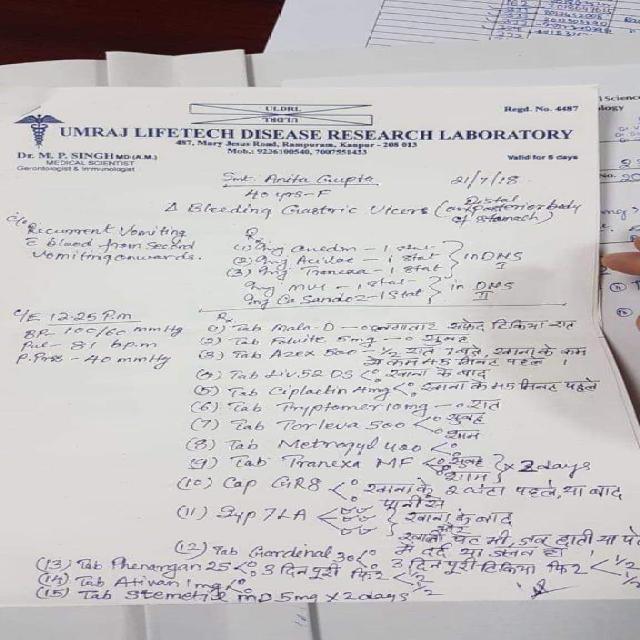 ULDRL
Regd. No. 4487
UMRAJ LIFETECH DISEASE RESEARCH LABORATORY
487, Mary Jesus Road, Rampuram, Kanpur - 208 013
Mob.: 9236100540, 7007551433
Dr. M. P. SINGH MD (A.M.)
MEDICAL SCIENTIST
Gerontologist & Immunologist
Valid for 5 days
Smt. Anita Gupta 21/7/18
40 yrs-F
Δ Bleeding Gastric Ulcers (Distal body of stomach)
c/o Recurrent vomiting
c̄ blood from second
vomiting onwards.
Rx
(1) Inj - 1 stat
(2) Inj Aciloc - 1 stat
(3) Inj Tranexa - 1 stat
in DNS I
Inj MVI - 1 stat
Inj Ca Sandoz - 1 stat
in DNS II
O/E 12-25 P.m
BP- 100/60 mmHg
Pul- 81 bpm
P.Prss - 40 mmHg
Rx
(1) Tab Mala-D - लगातार सफेद टिकिया रात
(2) Tab Folvite 5mg - सुबह
(3) Tab Azex 500 - 1/2 रात 1 बजे, खाना के कम
से कम 45 मिनट पहले ।
(4) Tab Liv.52 DS < खाना के बाद
(5) Tab Ciplactin 4mg < खाना के 45 मिनट पहले
(6) Tab Tryptomer 10mg - रात
(7) Tab Torleva 500 < सुबह
शाम
(8) Tab Metrogyl 400 <
(9) Tab Tranexa MF < सुबह
शाम } x 2 days
(10) Cap GR8 < खाना के 2 घंटा पहले, या बाद
पानी से
(11) Syp 7LA < खाना के बाद
और
खाली पेट भी, जब हाती या पेट
में दर्द या जलन हो ।
(12) Tab Gardenal 30 <
(13) Tab Phenargan 25 < 3 दिन पूरी फिर 1/2
3 दिन पूरी टिकिया फिर 1/2
(14) Tab Ativan 1mg <
(15) Tab Stemetil MD 5mg x 2 days